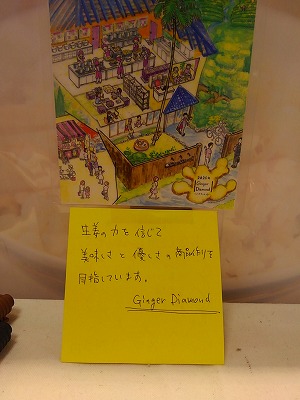 Ginger
Diamond
生姜の力を信じて
美味しさと優しさの商品作りを
目指しています。
Ginger Diamond